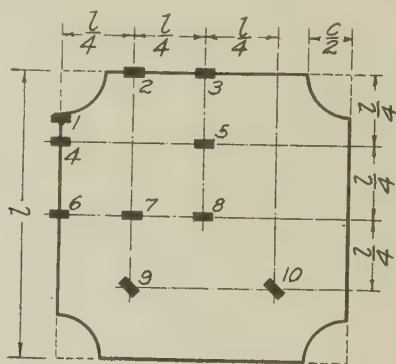 l/4 l/4 l/4 c/2
1
2
3
4
5
6
7
8
9
10
l
l/4
l/4
l/4